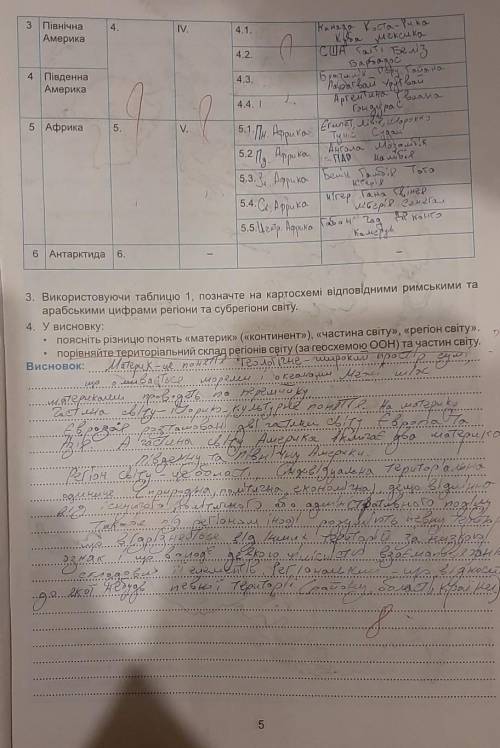 3 Північна Америка 4. IV. 4.1. Канада Коста-Ріка
Куба Мексика
4.2. США Гаїті Беліз
Барбадос
4 Південна Америка 4.3. Бразилія Перу Гайана
Парагвай Уругвай
4.4. Аргентина
Гондурас
5 Африка 5. V. 5.1. Пн. Африка Єгипет, Лівія, Марокко
Туніс Судан
5.2 Пд. Африка Ангола Мозамбік
ПАР Намібія
5.3. Зх. Африка Бенін Гамбія Того
5.4. Сх. Африка Нігер Гана Гвінея
Ліберія Сенегал
5.5. Центр. Африка Габон Чад ДР Конго
Камерун
6 Антарктида 6. – – –
3. Використовуючи таблицю 1, позначте на картосхемі відповідними римськими та
арабськими цифрами регіони та субрегіони світу.
4. У висновку:
• поясніть різницю понять «материк» («континент»), «частина світу», «регіон світу».
• порівняйте територіальний склад регіонів світу (за геосхемою ООН) та частин світу.
Висновок: Материк - це поняття геологічне - широкий простір суші
що омивається морями і океанами межі між
материками проводять по перешийку
Частина світу - історико-культурне поняття. На материку
Євразія розташовані дві частини світу Європа та
Азія А частина світу Америка включає два материка
Південну та Північну Америки.
Регіон світу це область індивідуальна територіальна
одиниця (природна, політична, економічна) дещо відмінно
від існуючого політичного або адміністративного поділу
Також під регіоном іноді розуміють певну територію
що відрізняється від інших територій за низкою
ознак що володіє деякою цілісністю взаємопов'язаністю
складових її елементів Регіональний - що відноситься
до якої небудь певної території (району, області, країни)
8
5